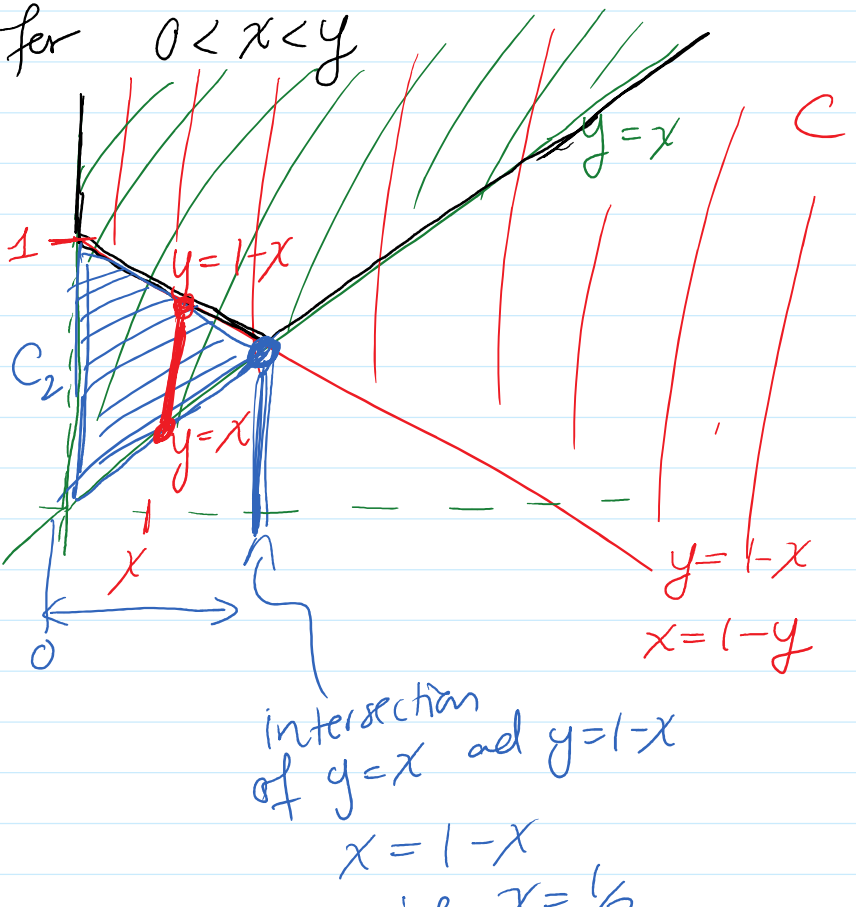 for 0 < x < y
C
y = x
1
y = 1-x
C₂
y = x
x
y = 1-x
x = 1-y
0
intersection
of y = x ad y = 1-x
x = 1-x